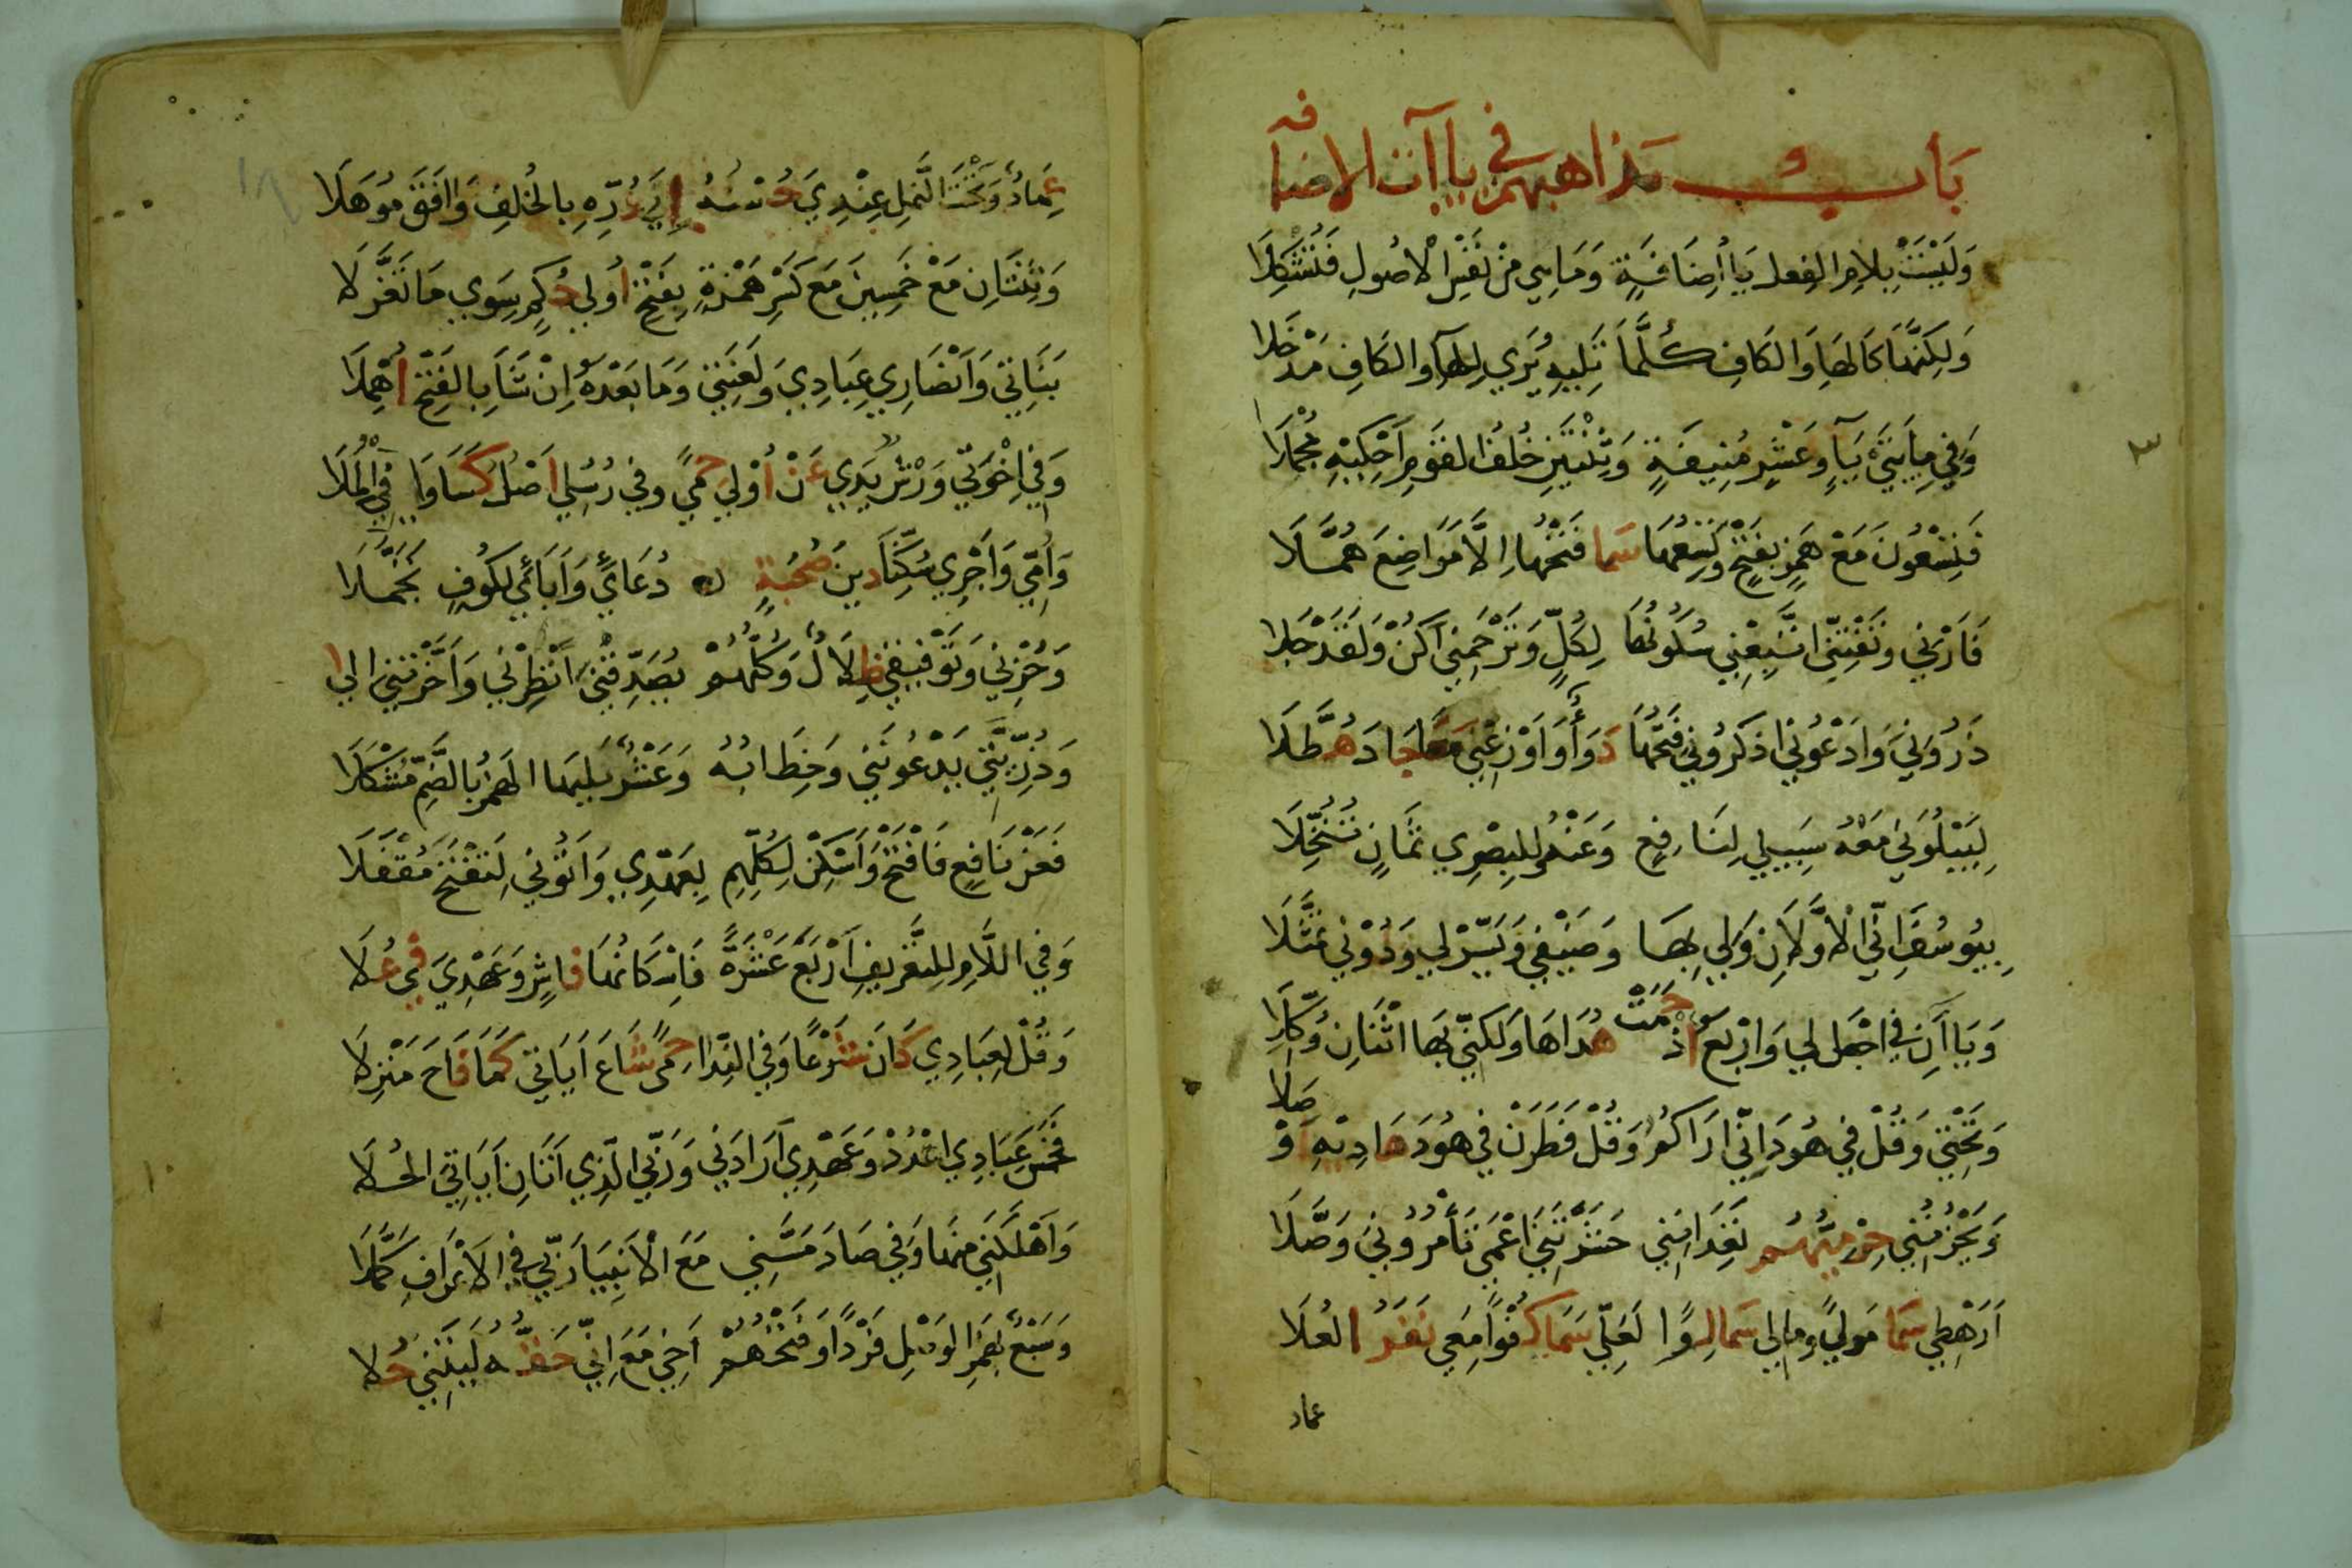 بَابُ مذاهبهم في ياآت الاضافه
وَلَيْسَتْ بِلاَمِ الفِعلِ يَا أِضَافَةٍ وَمَا هِي مِنْ نَفْسِ الْاصُولِ فَتُشْكِلَا
وَلَكِنَّهَا كَالهَا وَالكَافِ كُلَّمَا تَلِيهِ يُرَي لِلهَآ وَالكَافِ مَدْخَلا
وَفِي مِايَتَيْ يَآءٍ وَعَشْرٍ مُنِيفَةٍ وَثِنْتَيْنِ خُلْفُ القَومِ اَحْكِيْهِ مُجْمَلَا
فَتِسْعُونَ مَعْ هَمْزٍ بِفَتْحٍ وَتِسْعُهَا سَمَا فَتْحُهَا اِلَّا مَوَاضِعَ هُمَّلَا
فَأَرْنِي وَتَفْتِنِّي اتَّبِعْنِي سُكُونُهَا لِكُلٍّ وَتَرْحَمْنِي اَكُنْ وَلَقَدْ جَلا
ذَرُونِيَ وَادْعُونِي اذكُرُونِي فَتْحُهَا دَوَأ وَاَوْزِعْنِي مَعًا جَا دَ هُطَّلَا
لِيَبْلُوَنِي مَعْهُ سَبِيلِي لِنَافِعٍ وَعَنْهُ وَلِلبِصْرِي ثَمَانٍ تُنُخِّلَا
بِيُوسُفَ اِنِّي الْاوَّلَانِ وَلِي بِهَا وَضَيْفِي وَيَسِّرْلِي وَدُوْنِي تَمَثَّلَا
وَيَاآنِ فِي اجْعَل لِي وَارْبَعٌ اذْ حَمَتْ هُدَاهَا وَلَكِنِّي بَهَا اثْنَانِ وُكِّلَا
وَتَحْتِي وَقُلْ فِي هُودَ اِنِّي ارَاكُمُ وَقُلْ فَطَرَنْ فِي هُودَ هَادِيْهِ اَوْصَلَا
وَيَحْزُنُنِي حِرْمِيُّهُم تَعِدَانِنِي حَشَرْتَنِي اَعْمَي تَأْمُرُونِي وَصَّلَا
اَرَهْطِي سَمَا مَولًي وَمَالِي سَمَا لِوًا لَعَلِّي سَمَا كُفْوًا مَعِي نَفَرُ العُلَا
عماد
٣
عِمَادٌ وَتَحْتَ النَّمْلِ عِنْدِيَ حُسْنُهُ إِلَي دُرِّهِ بِالخُلفِ وَافَقَ مُوهَلَا
وَثِنْتَانِ مَعْ خَمسِينَ مَعَ كَسْرِ هَمْزَةٍ بِفَتْحٍ اُولِي حُكْمٍ سِوَي مَا تَعَزَّلا
بَنَاتِي وَاَنْصَارِي عِبَادِي وَلَعْنَتِي وَمَا بَعْدَهُ اِنْ شَا بِالفَتْحِ اُهْمِلَا
وَفِي اِخْوَتِي وَرْشٌ يَدِي عَنْ اُوْلِي حِمًي وَفِي رُسُلِي اَصْلٌ كَسَا وَافِيَ الْمُلَا
وَاُمِّي وَاَجْرِي سُكِّنَا دِينُ صُحْبَةٍ دُعَايً وَاَبَائِي لِكُوفٍ تَجَمَّلَا
وَحُزْنِي وَتَوْفِيقِي ظِلَالٌ وَكُلُّهُمْ يُصَدِّقْنِيَ اَنْظِرْنِي وَاَخَّرْتَنِي اِلي
وَذُرِّيَتِي يَدْعُونَنِي وَخِطَابُهُ وَعَشْرٌ يَلِيهَا الهَمْزُ بِالضَّمِّ مُشْكَلَا
فَعَنْ نَافِعٍ فَافْتَحْ وَاَسْكِنْ لِكُلِّهِمِ بِعَهْدِي وَاَتُونِي لِتَفْتَحَ مُقْفَلَا
وَفِي اللَّامِ لِلتَّعْرِيفِ اَرْبَعُ عَشْرَةً فَاِسْكَانُهَا فَاشٍ وَعَهْدِيَ فِي عُلَا
وَقُلْ لِعِبَادِي كَانَ شَرْعًا وَفِي النِّدَا حِمًي شَاعَ اَيَاتِي كَمَا فَاحَ مَنْزِلا
فَخَمْسَ عِبَادِي اعْدُدْ وَعَهْدِي اَرَادَنِي وَرَبِّي الَّذِي اَتَانِ اَيَاتِي الحُلَا
وَاَهْلَكَنِي مِنْهَا وَفِي صَادَ مَسَّنِي مَعَ الْانبِيَا رَبِّي فِي الْاعْرَافِ كَمَّلَا
وَسَبْعٌ بِهَمْزِ الوَصْلِ فَرْدًا وَفَتْحُهُمْ اَخِي مَعَ اِنِّي حَقُّهُ لَيْتَنِي حُلا